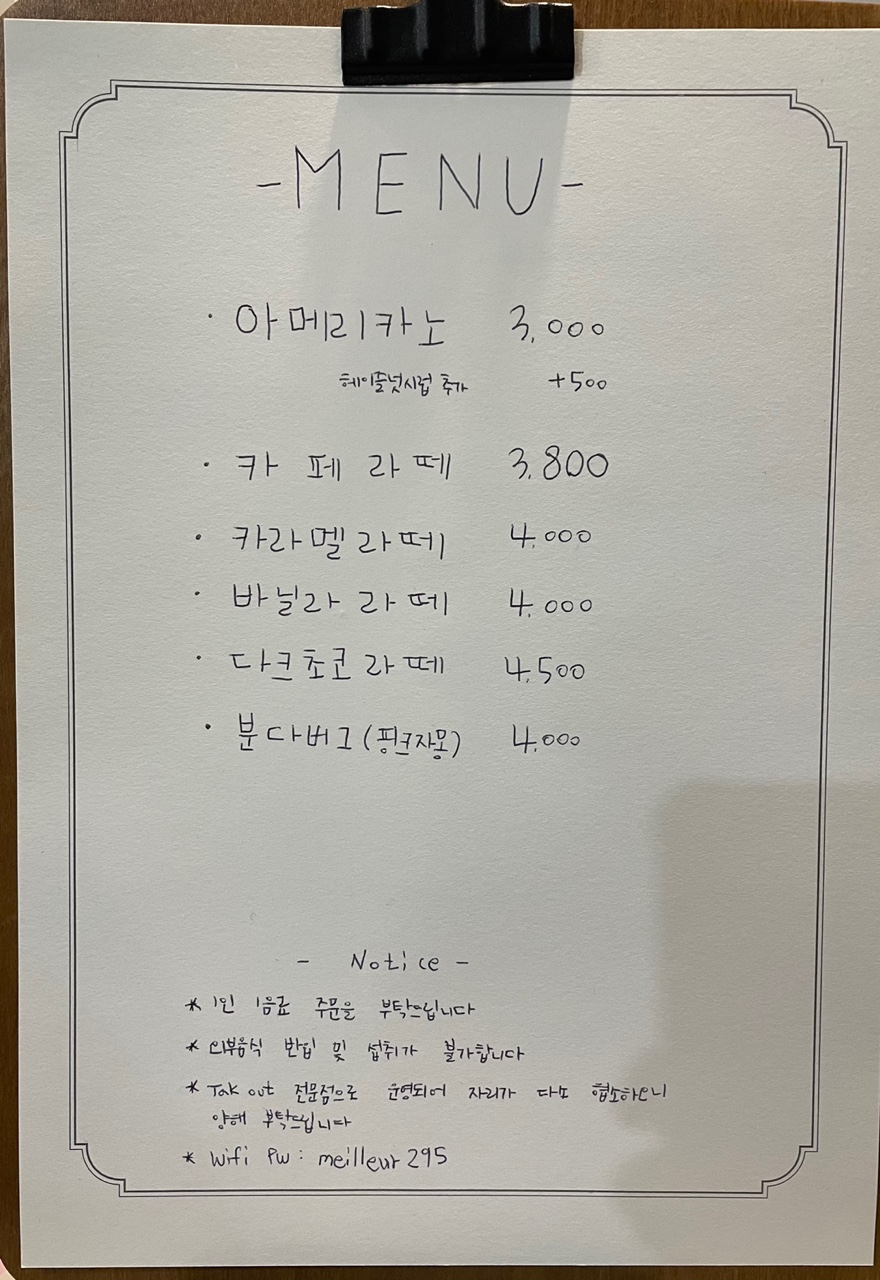 -MENU-
· 아메리카노 3,000
헤이즐넛시럽 추가 +500
· 카페라떼 3,800
· 카라멜라떼 4,000
· 바닐라 라떼 4,000
· 다크초코라떼 4,500
· 분다버그(핑크자몽) 4,000
- Notice -
* 1인 1음료 주문을 부탁드립니다
* 외부음식 반입 및 섭취가 불가합니다
* Tak out 전문점으로 운영되어 자리가 다소 협소하오니
양해 부탁드립니다
* Wifi PW : meilleur295